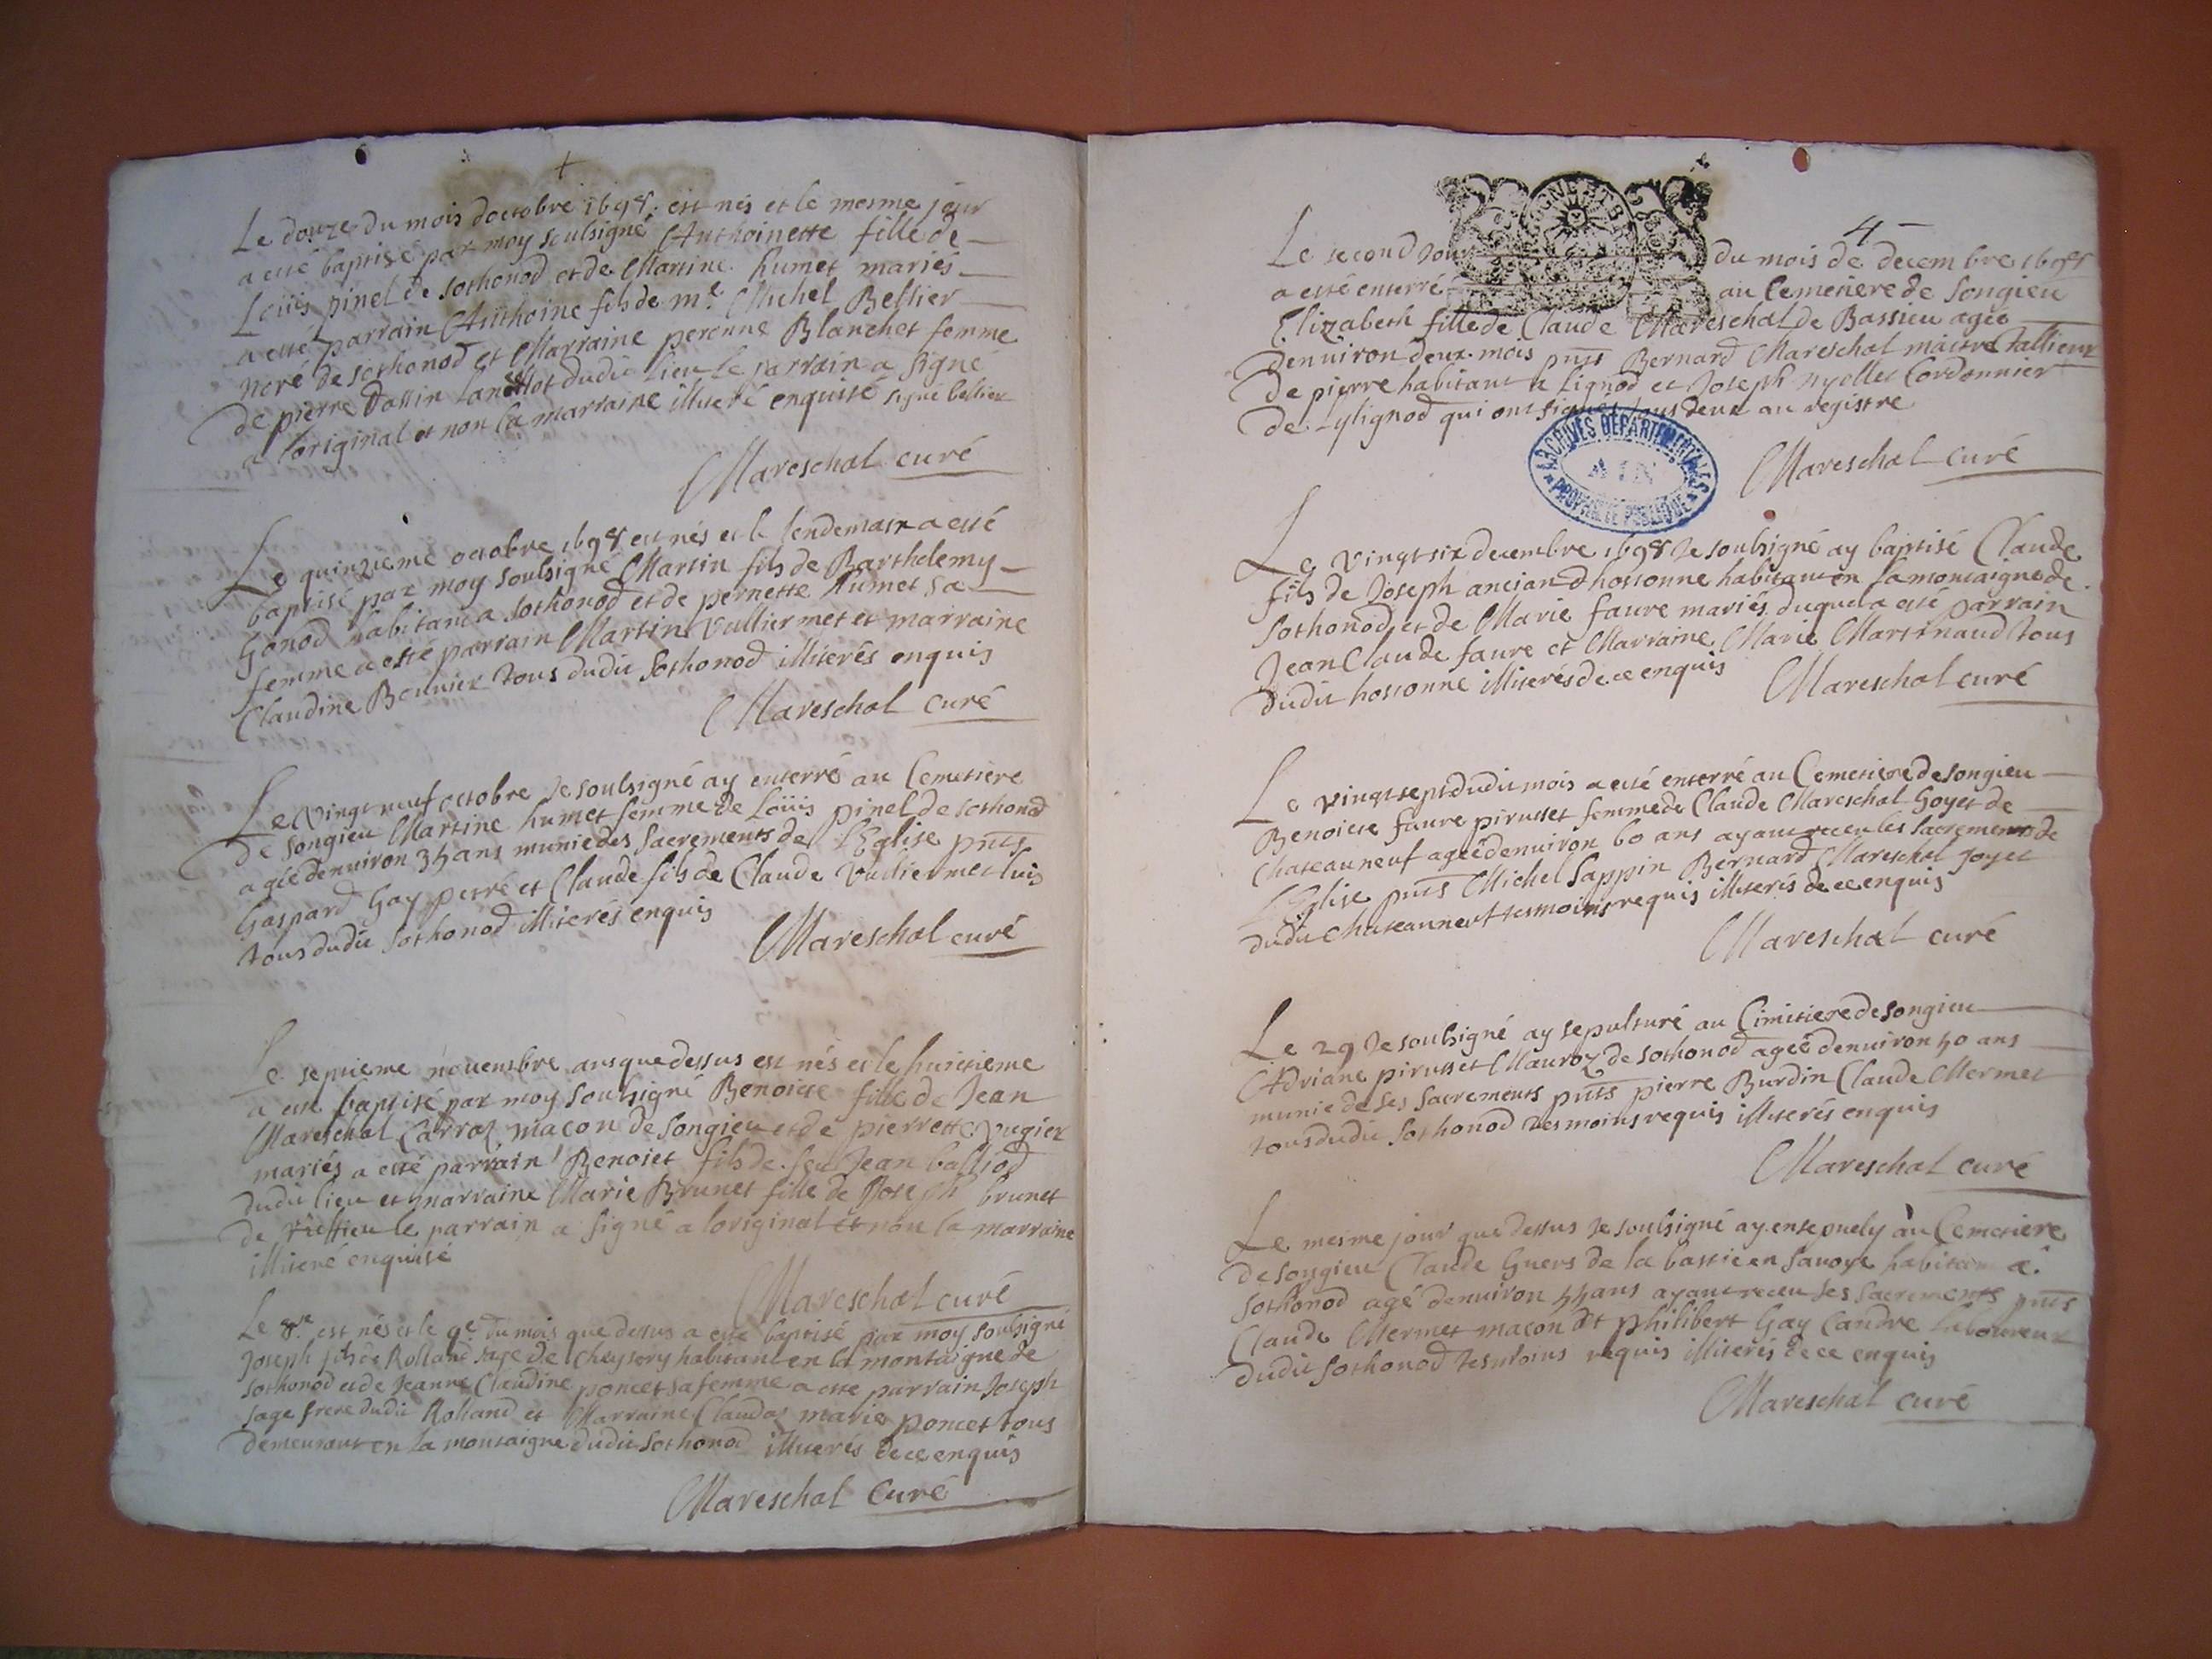 Le douze du mois doctobre 1698 est nés et le mesme jour
a esté baptisé par moy soubsigné Anthoinette fille de
Loüis pinel de sothonod et de Martine humet mariés
a esté parrain Anthoine fils de me Michel Bellier
noré de sothonod et Marraine peronne Blanchet femme
de pierre dassin Lancellot dudit lieu le parrain a signé
a l'original et non la marraine illiteré enquisé signé bellier
Mareschal curé
Le quinzieme octobre 1698 est nés et le lendemain a esté
baptisé par moy soubsigné Martin fils de Barthelemy
Gonod habitant a sothonod et de pernette humet sa
femme a esté parrain Martin Vulliermet et marraine
Claudine Bonnier tous dudit sothonod illiterés enquis
Mareschal curé
Le vingt neuf octobre Je soubsigné ay enterré au Cemetiere
de songieu Martine humet femme de Loüis pinel de sothonod
agée denuiron 35 ans munie des Sacrements de l'Eglise pnts
Gaspard Gay petré et Claude fils de Claude Vulliermet luis
tous dudit sothonod illiterés enquis
Mareschal curé
Le septieme nouembre an que dessus est nés et le huictieme
a esté baptisé par moy soubsigné Benoiste fille de Jean
Mareschal Carroz macon de songieu et de pierrette Vugier
mariés a esté parrain Benoict fils de feu Jean balliod
dudit lieu et marraine Marie Brunet fille de Joseph brunet
de Vieffieu le parrain a signé a loriginal et non la marraine
illiteré enquisé
Mareschal curé
Le 8e est nés et le 9e du mois que dessus a esté baptisé par moy soubsigné
Joseph fils de Rolland sage de Cheysery habitant en la montaigne de
sothonod et de Jeanne Claudine poncet sa femme a esté parrain Joseph
sage frere dudit Rolland et Marraine Clauda marie poncet tous
demeurant en la montaigne dudit sothonod illiterés de ce enquis
Mareschal Curé
4
Le second jour du mois de decembre 1698
a esté enterré au Cemetiere de Songieu
Elizabeth fille de Claude Mareschal de Bassieu agée
denuiron deux mois pnts Bernard Mareschal maitre tallieur
de pierre habitant a Lignod et Joseph nyollet Cordonnier
de Lylignod qui ont signés tous deux au registre
Mareschal curé
ARCHIVES DEPARTEMENTALES
AIN
PROPRIETE PUBLIQUE
Le vingt six decembre 1698 Je soubsigné ay baptisé Claude
fils de Joseph anciand hotonne habitant en la montaigne de
sothonod et de Marie faure mariés duquel a esté parrain
Jean Claude faure et Marraine Marie Martinaud tous
dudit hotonne illiterés de ce enquis
Mareschal curé
Le vingt sept dudit mois a esté enterré au Cemetiere de songieu
Benoicte faure pirusset femme de Claude Mareschal Goyet de
Chateauneuf agée denuiron 60 ans ayant receu les sacrements de
L'Eglise pnts Michel sappin Bernard Mareschal Joyet
dudit chateauneuf tesmoins requis illiterés de ce enquis
Mareschal curé
Le 29 Je soubsigné ay sepulturé au Cimitiere de songieu
Adriane pirusset Mauroz de sothonod agée denuiron 50 ans
munie de ses sacrements pnts pierre Burdin Claude Mermet
tous dudit sothonod tesmoins requis illiterés enquis
Mareschal curé
Le mesme jour que dessus Je soubsigné ay ensepuely au Cemetiere
de songieu Claude Guers de la bastie en sauoye habitant a
sothonod agé denuiron 55 ans ayant receu ses sacrements pnts
Claude Mermet macon et philibert Gay Candre laboureur
dudit sothonod tesmoins requis illiterés de ce enquis
Mareschal curé